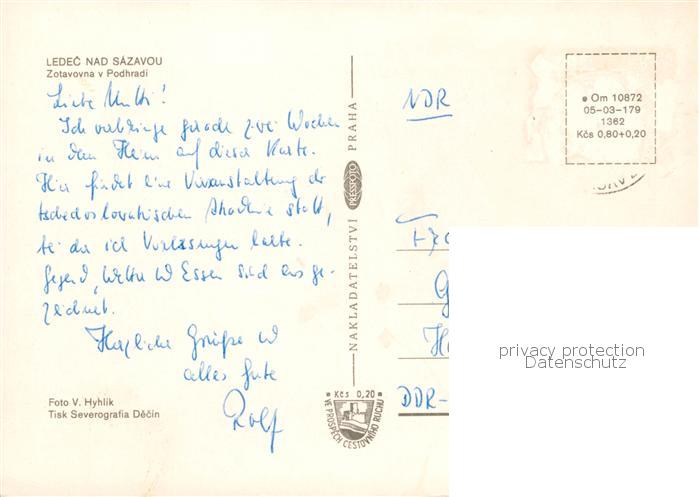 LEDEČ NAD SÁZAVOU
Zotavovna v Podhradí
Liebe Mutti!
Ich verbringe gerade zwei Wochen
in dem Heim auf dieser Karte.
Hier findet eine Veranstaltung der
tschechoslowakischen Akademie statt,
bei der ich Vorlesungen halte.
Gegend, Wetter und Essen sind ausge-
zeichnet.
Herzliche Grüße und
alles Gute
Rolf
Foto V. Hyhlík
Tisk Severografia Děčín
NAKLADATELSTVÍ PRESSFOTO PRAHA
Kčs 0,20
VE PROSPĚCH CESTOVNÍHO RUCHU
NDR
Om 10872
05-03-179
1362
Kčs 0,80+0,20
DDR-
privacy protection
Datenschutz